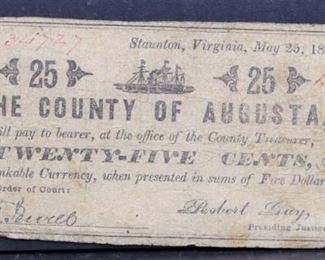 34727 Staunton, Virginia, May 25, 18
25 25
HE COUNTY OF AUGUSTA
ill pay to bearer, at the office of the County Treasurer,
TWENTY-FIVE CENTS,
nkable Currency, when presented in sums of Five Dollar
order of Court:
Robert Guy,
Presiding Justice